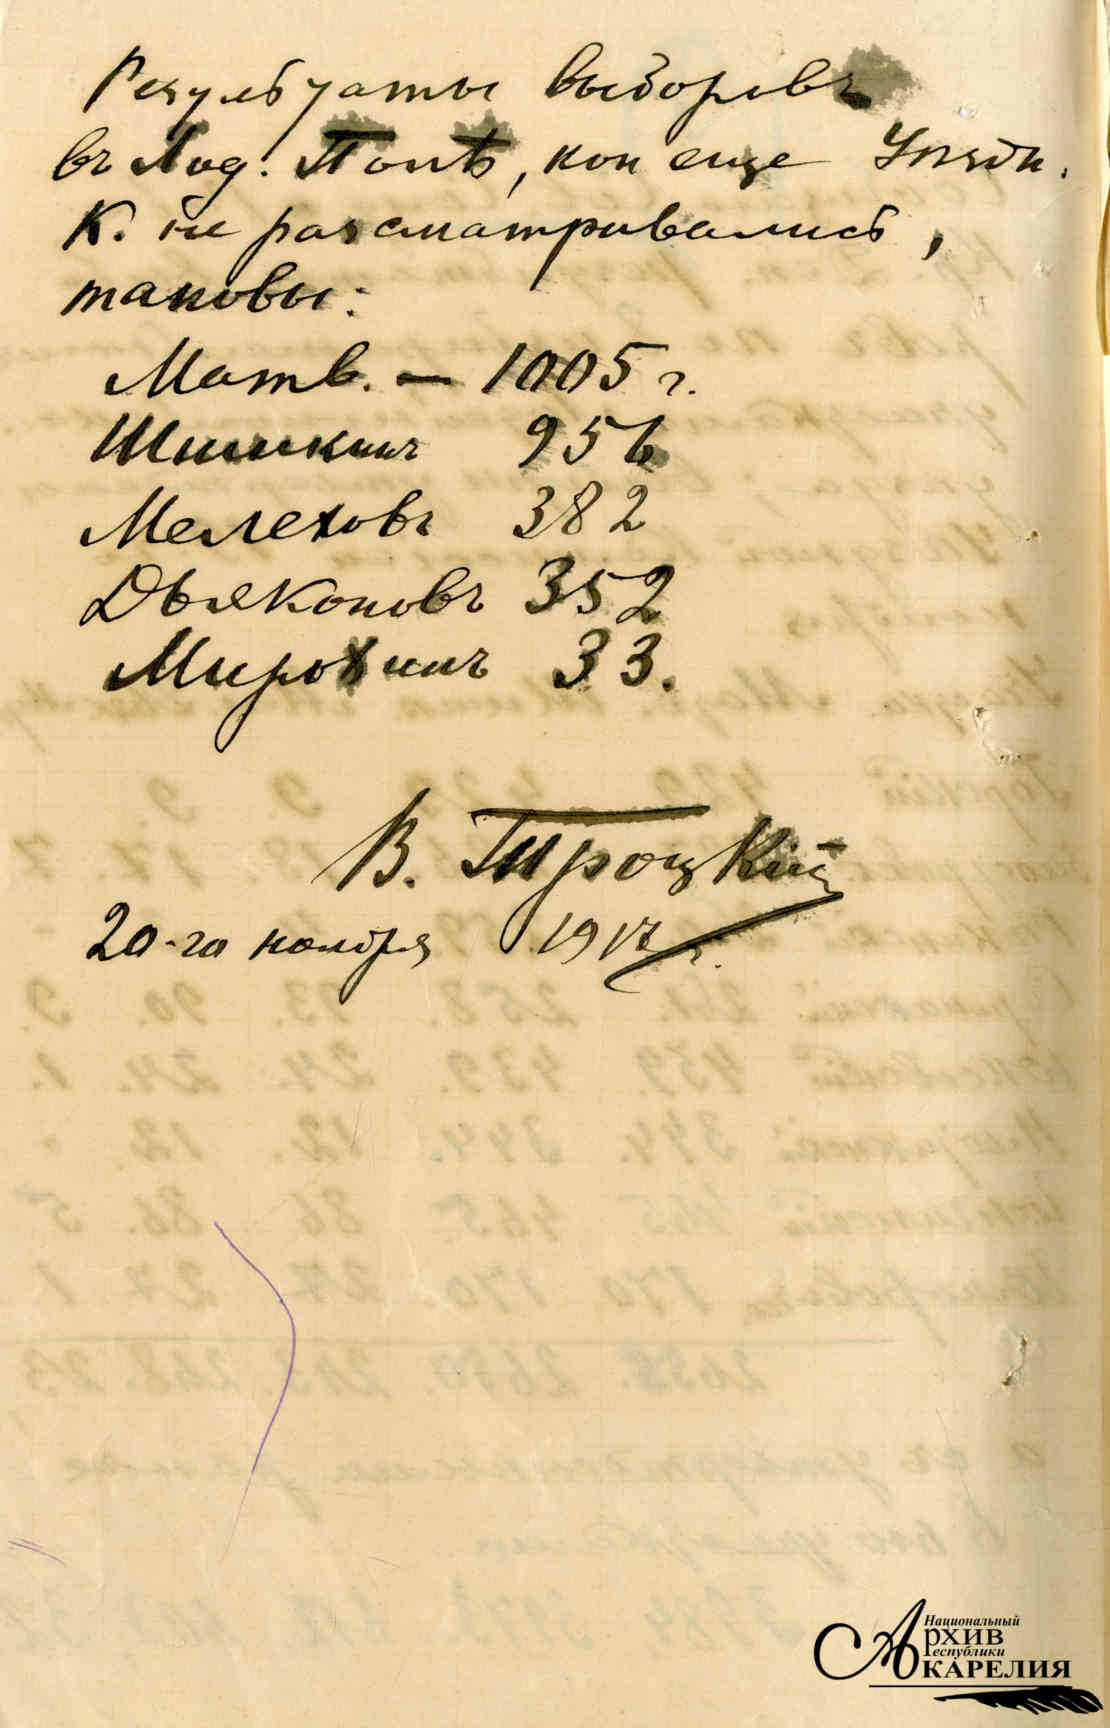 Результаты выборовъ
въ Лод. Полѣ, кои еще Уѣздн.
К. не разсматривались,
таковы:
Матв. — 1005 г.
Шишкинъ 956
Мелеховъ 382
Дьяконовъ 352
Мирохинъ 33.
В. Троцкій
20-го ноября 1917 г.
Национальный
Архив
Республики
Карелия